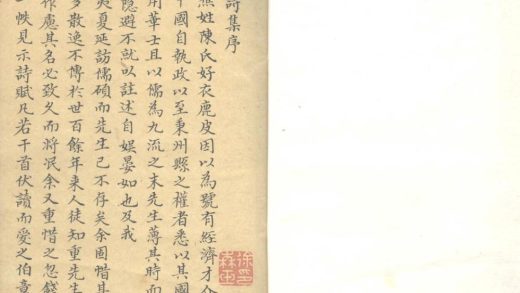 詩集序
姓陳氏好衣鹿皮因以為號有經濟才
中國自執政以至秉州縣之權者悉以其國
用華士且以儒為九流之末先生薄其時而
隱避不就以註述自娛晏如也及我
夷夏延訪儒碩而先生已不存矣余固惜其
多散逸不傳於世百餘年來人徒知重先生
作慮其名必致久而將泯余又重惜之忽錢
一帙見示詩賦凡若干首伏讀而愛之伯章